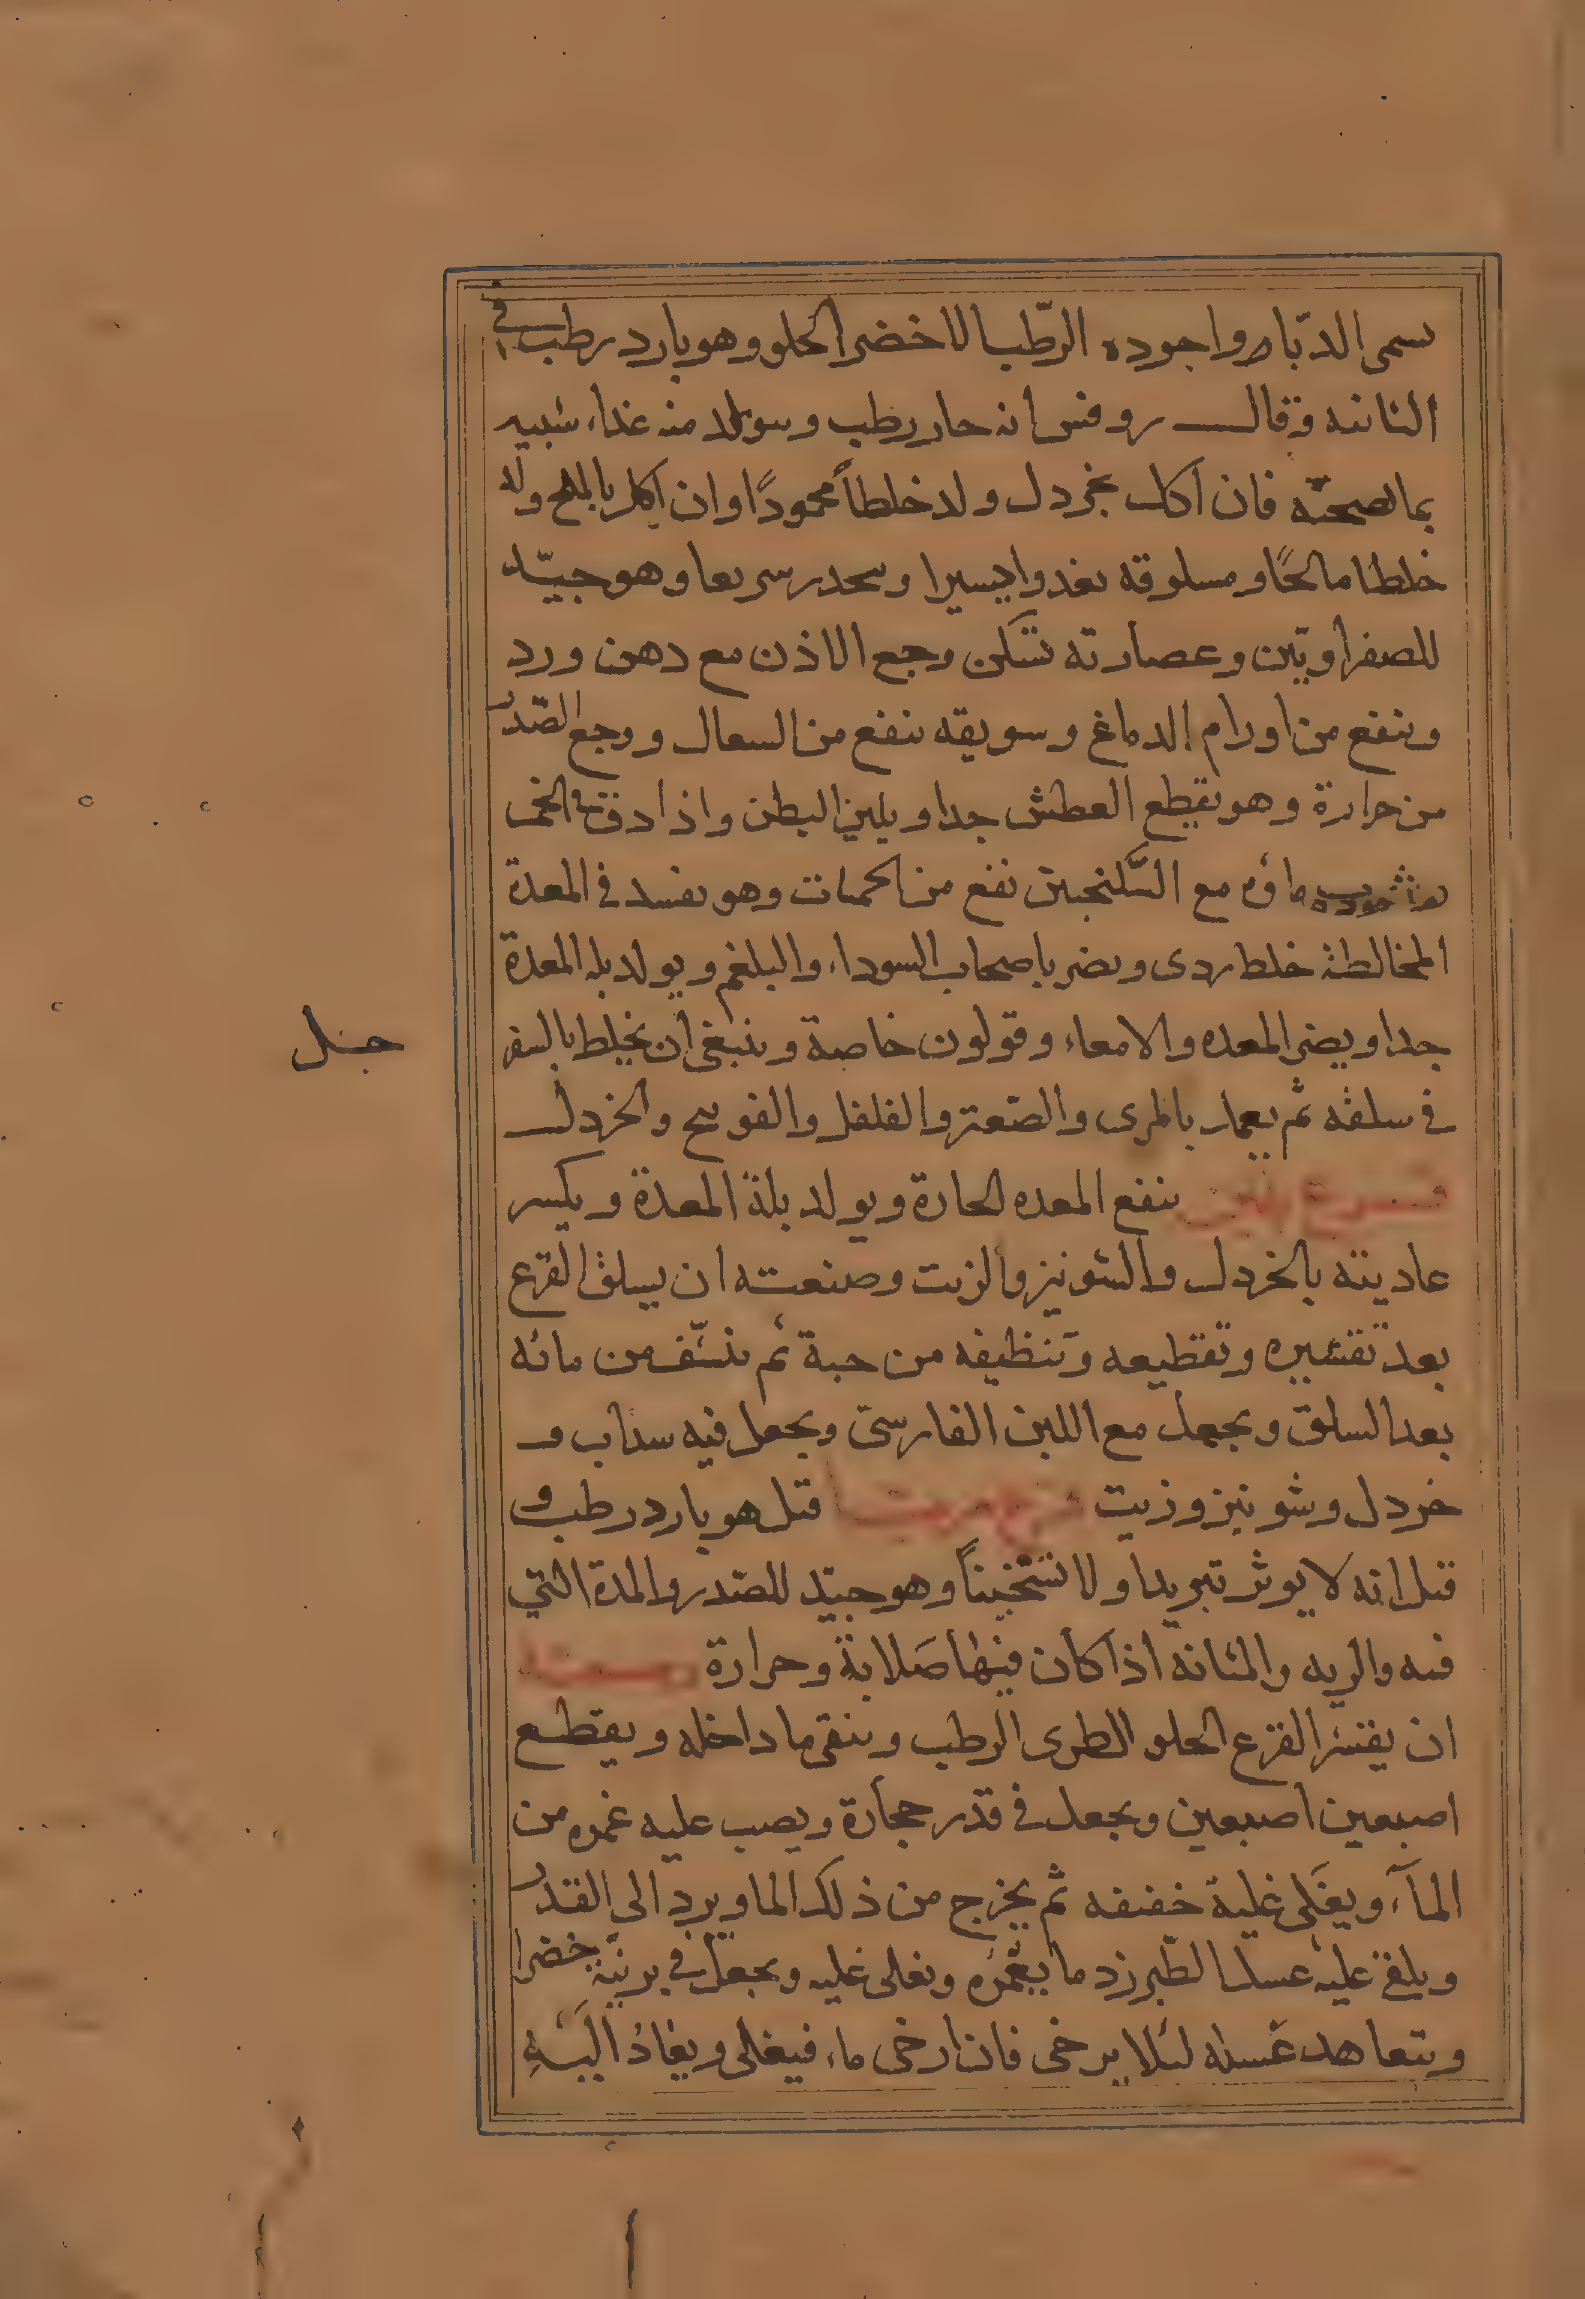 سمى الدبار واجوده الرطب الاخضر الحلو وهو بارد رطب فى
الثانيه وقال روفس انه حار رطب وسولد منه غذاء شبيه
بما صحبه فان اكل بخردل ولد خلطاً محموداً وان اكل بالملح ولد
خلطا مالحًا ومسلوقه يغدوا يسيرا وينحدر سريعا وهو جيّد
للصفراويّين وعصارته تسكن وجع الاذن مع دهن ورد
وينفع من اورام الدماغ وسويقه ينفع من السعال ووجع الصّدر
من حرارة وهو يقطع العطش جدا ويلين البطن واذا دق
ماؤه مع السّكنجبين نفع من الحميات وهو يفسد فى المعدة
المخالطة خلط ردى ويضر باصحاب السوداء والبلغم ويولد بله المعدة
جدا ويضر المعده والامعاء وقولون خاصة وينبغى ان يخلط
فى سلقه ثم يعمل بالمرى والصّعتر والفلفل والفوتنج والخردل
ينفع المعده الحارة ويولد بلة المعدة ويكسر
عاديته بالخردل والشونيز والزيت وصنعته ان يسلق القرع
بعد تقشيره وتقطيعه وتنظيفه من حبة ثم ينشّف من مائه
بعد السلق ويجعل مع اللبن الفارسى ويجعل فيه سداب و
خردل وشونيز وزيت قيل هو بارد رطب و
قيل انه لا يوثر تبريدا ولا تسخيناً وهو جيّد للصّدر والمدة التي
فيه والريه والمثانه اذا كان فيها صَلابة وحرارة
ان يقشر القرع الحلو الطرى الرطب وينقى ما داخله ويقطع
اصبعين اصبعين ويجعل فى قدر حجارة ويصب عليه غمره من
المآء ويغلى غلية خفيفه ثم يخرج من ذلك الما ويرد الى القدر
ويلقى عليه عسل الطبرزد ما يغمره ويغلى غليه ويجعل فى برنيّة خضرا
ويتعاهد عَسله لئلا يرخى فان ارخى ماء فيغلى ويعادُ